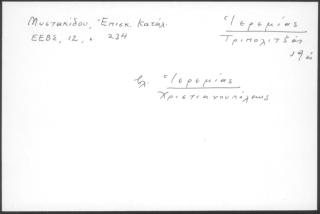 Μυστακίδου, Ἐπισκ. Κατάλ.
ΕΕΒΣ, 12, σ 234
Ἱερεμίας
Τριπολιτζᾶς
19ος
βλ. Ἱερεμίας
Χριστιανουπόλεως